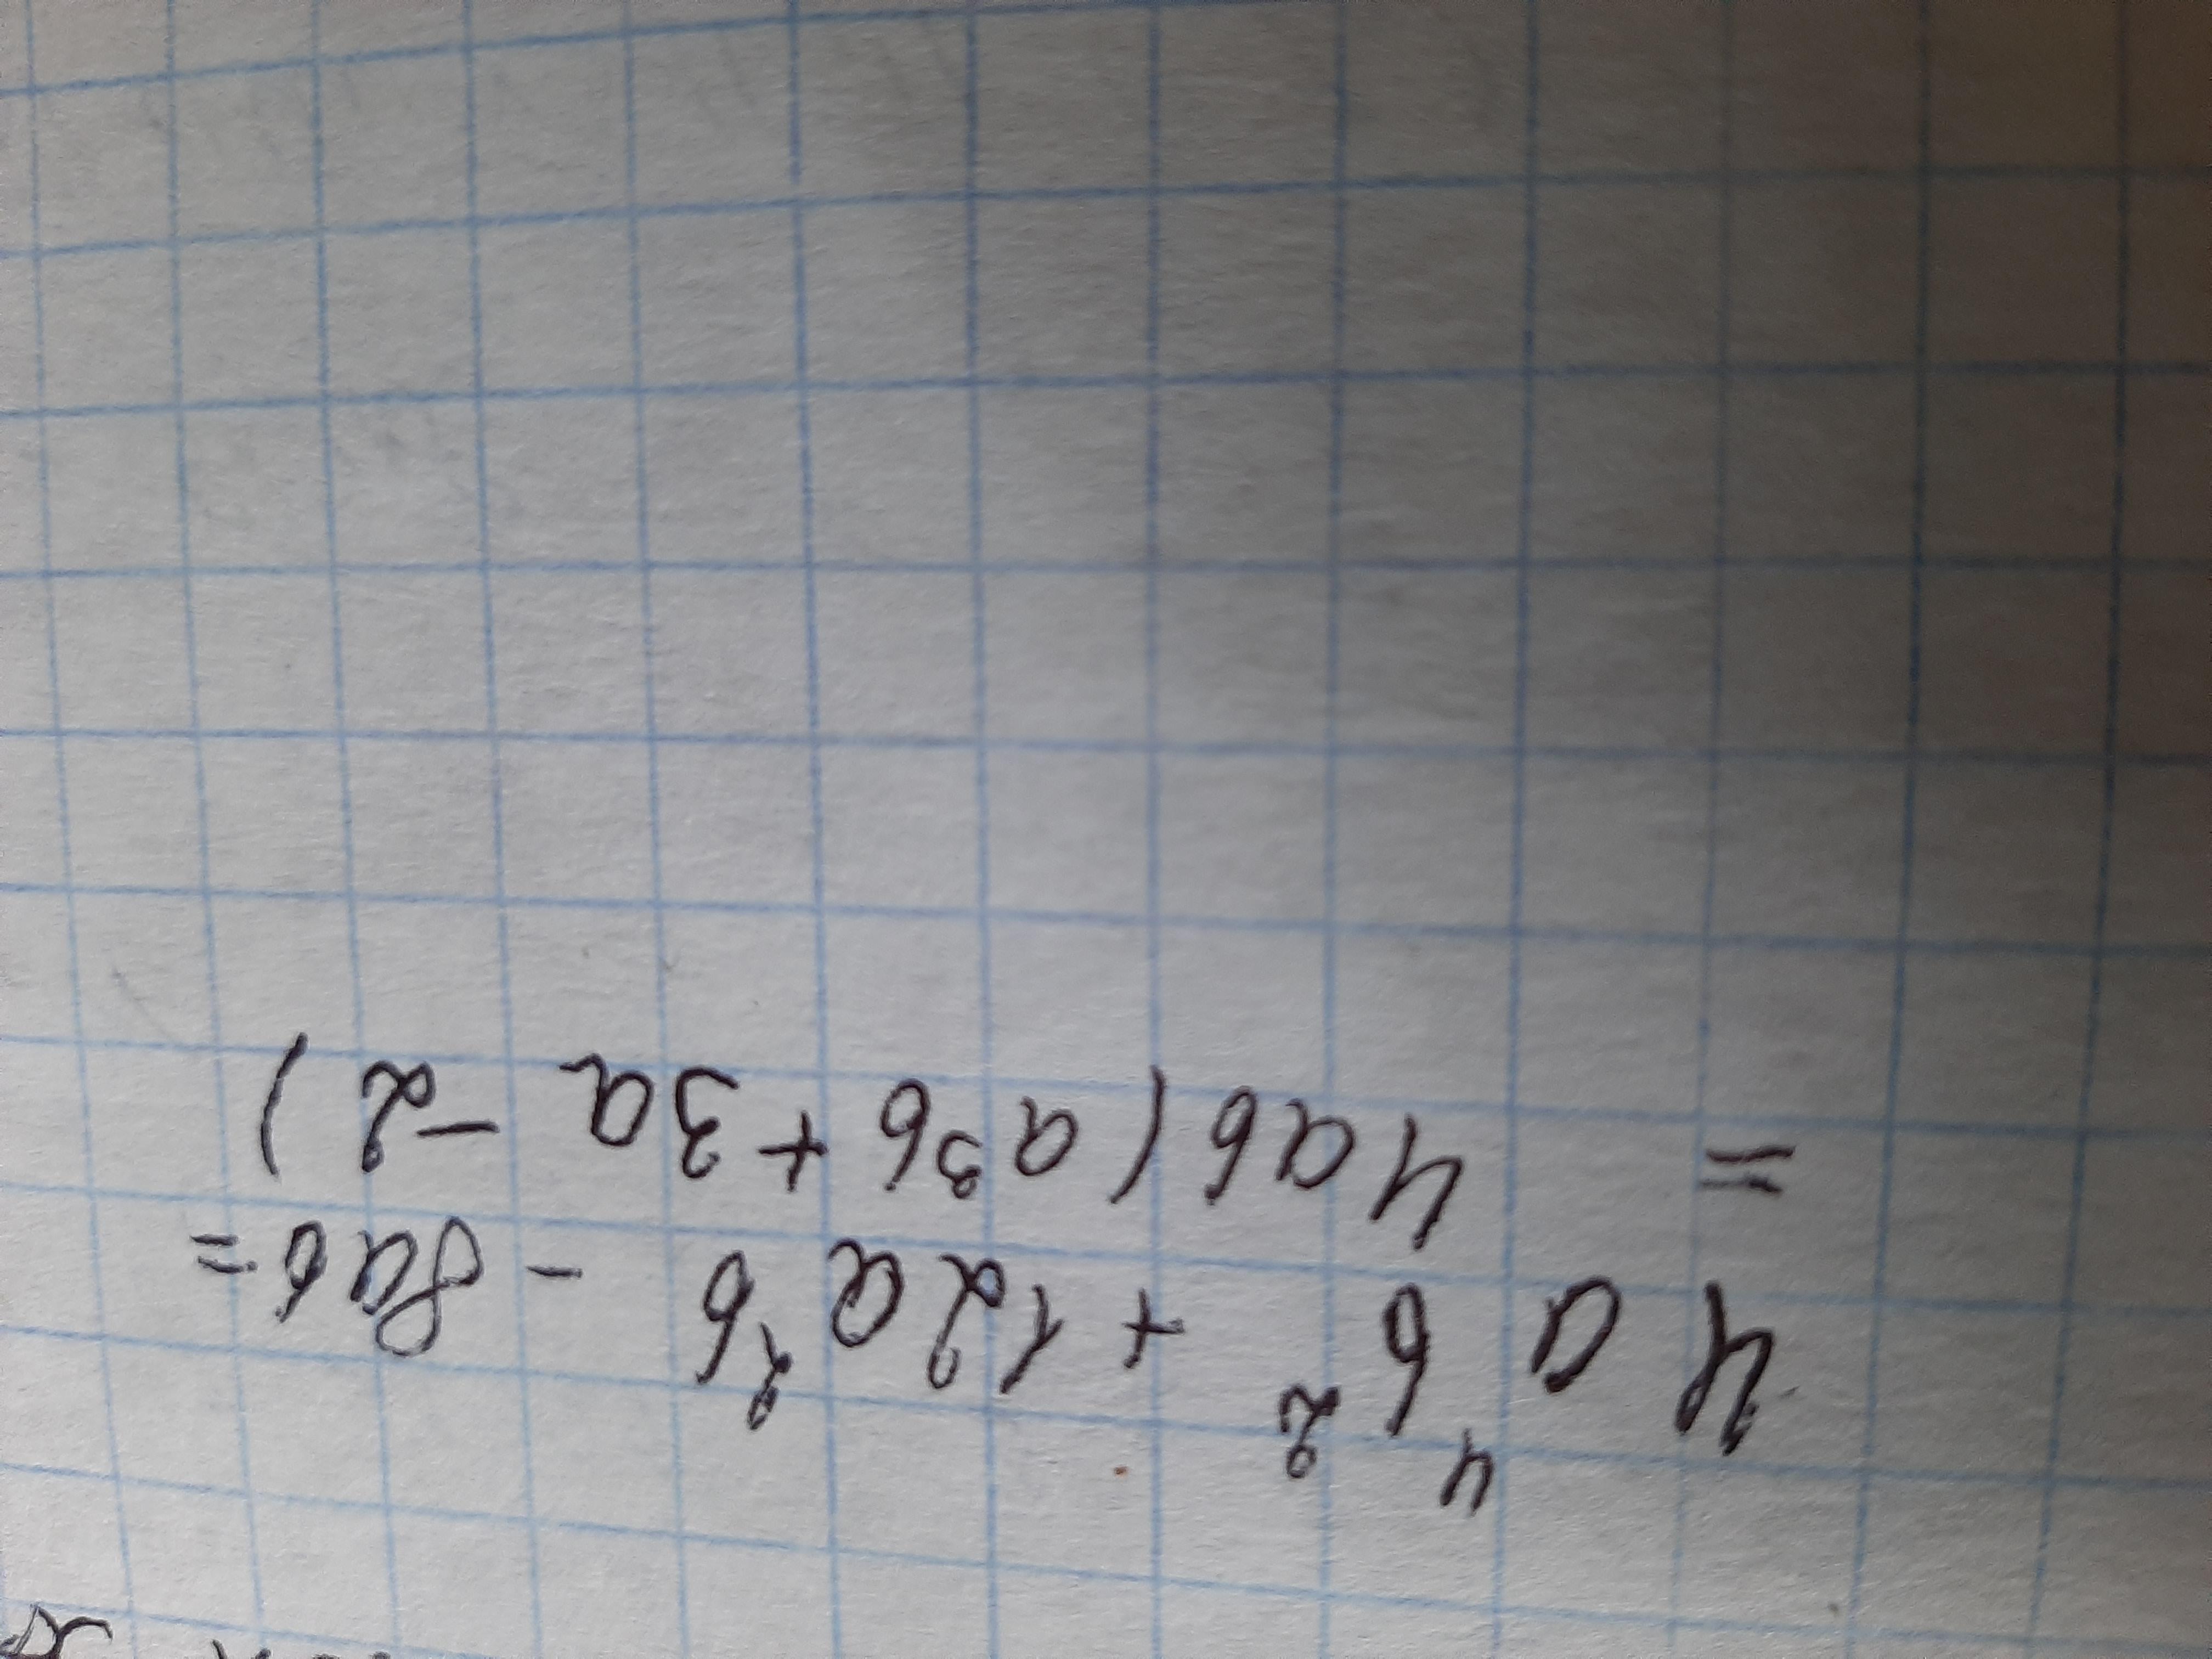 4a⁴b² + 12a²b - 8ab =
= 4ab(a³b + 3a - 2)